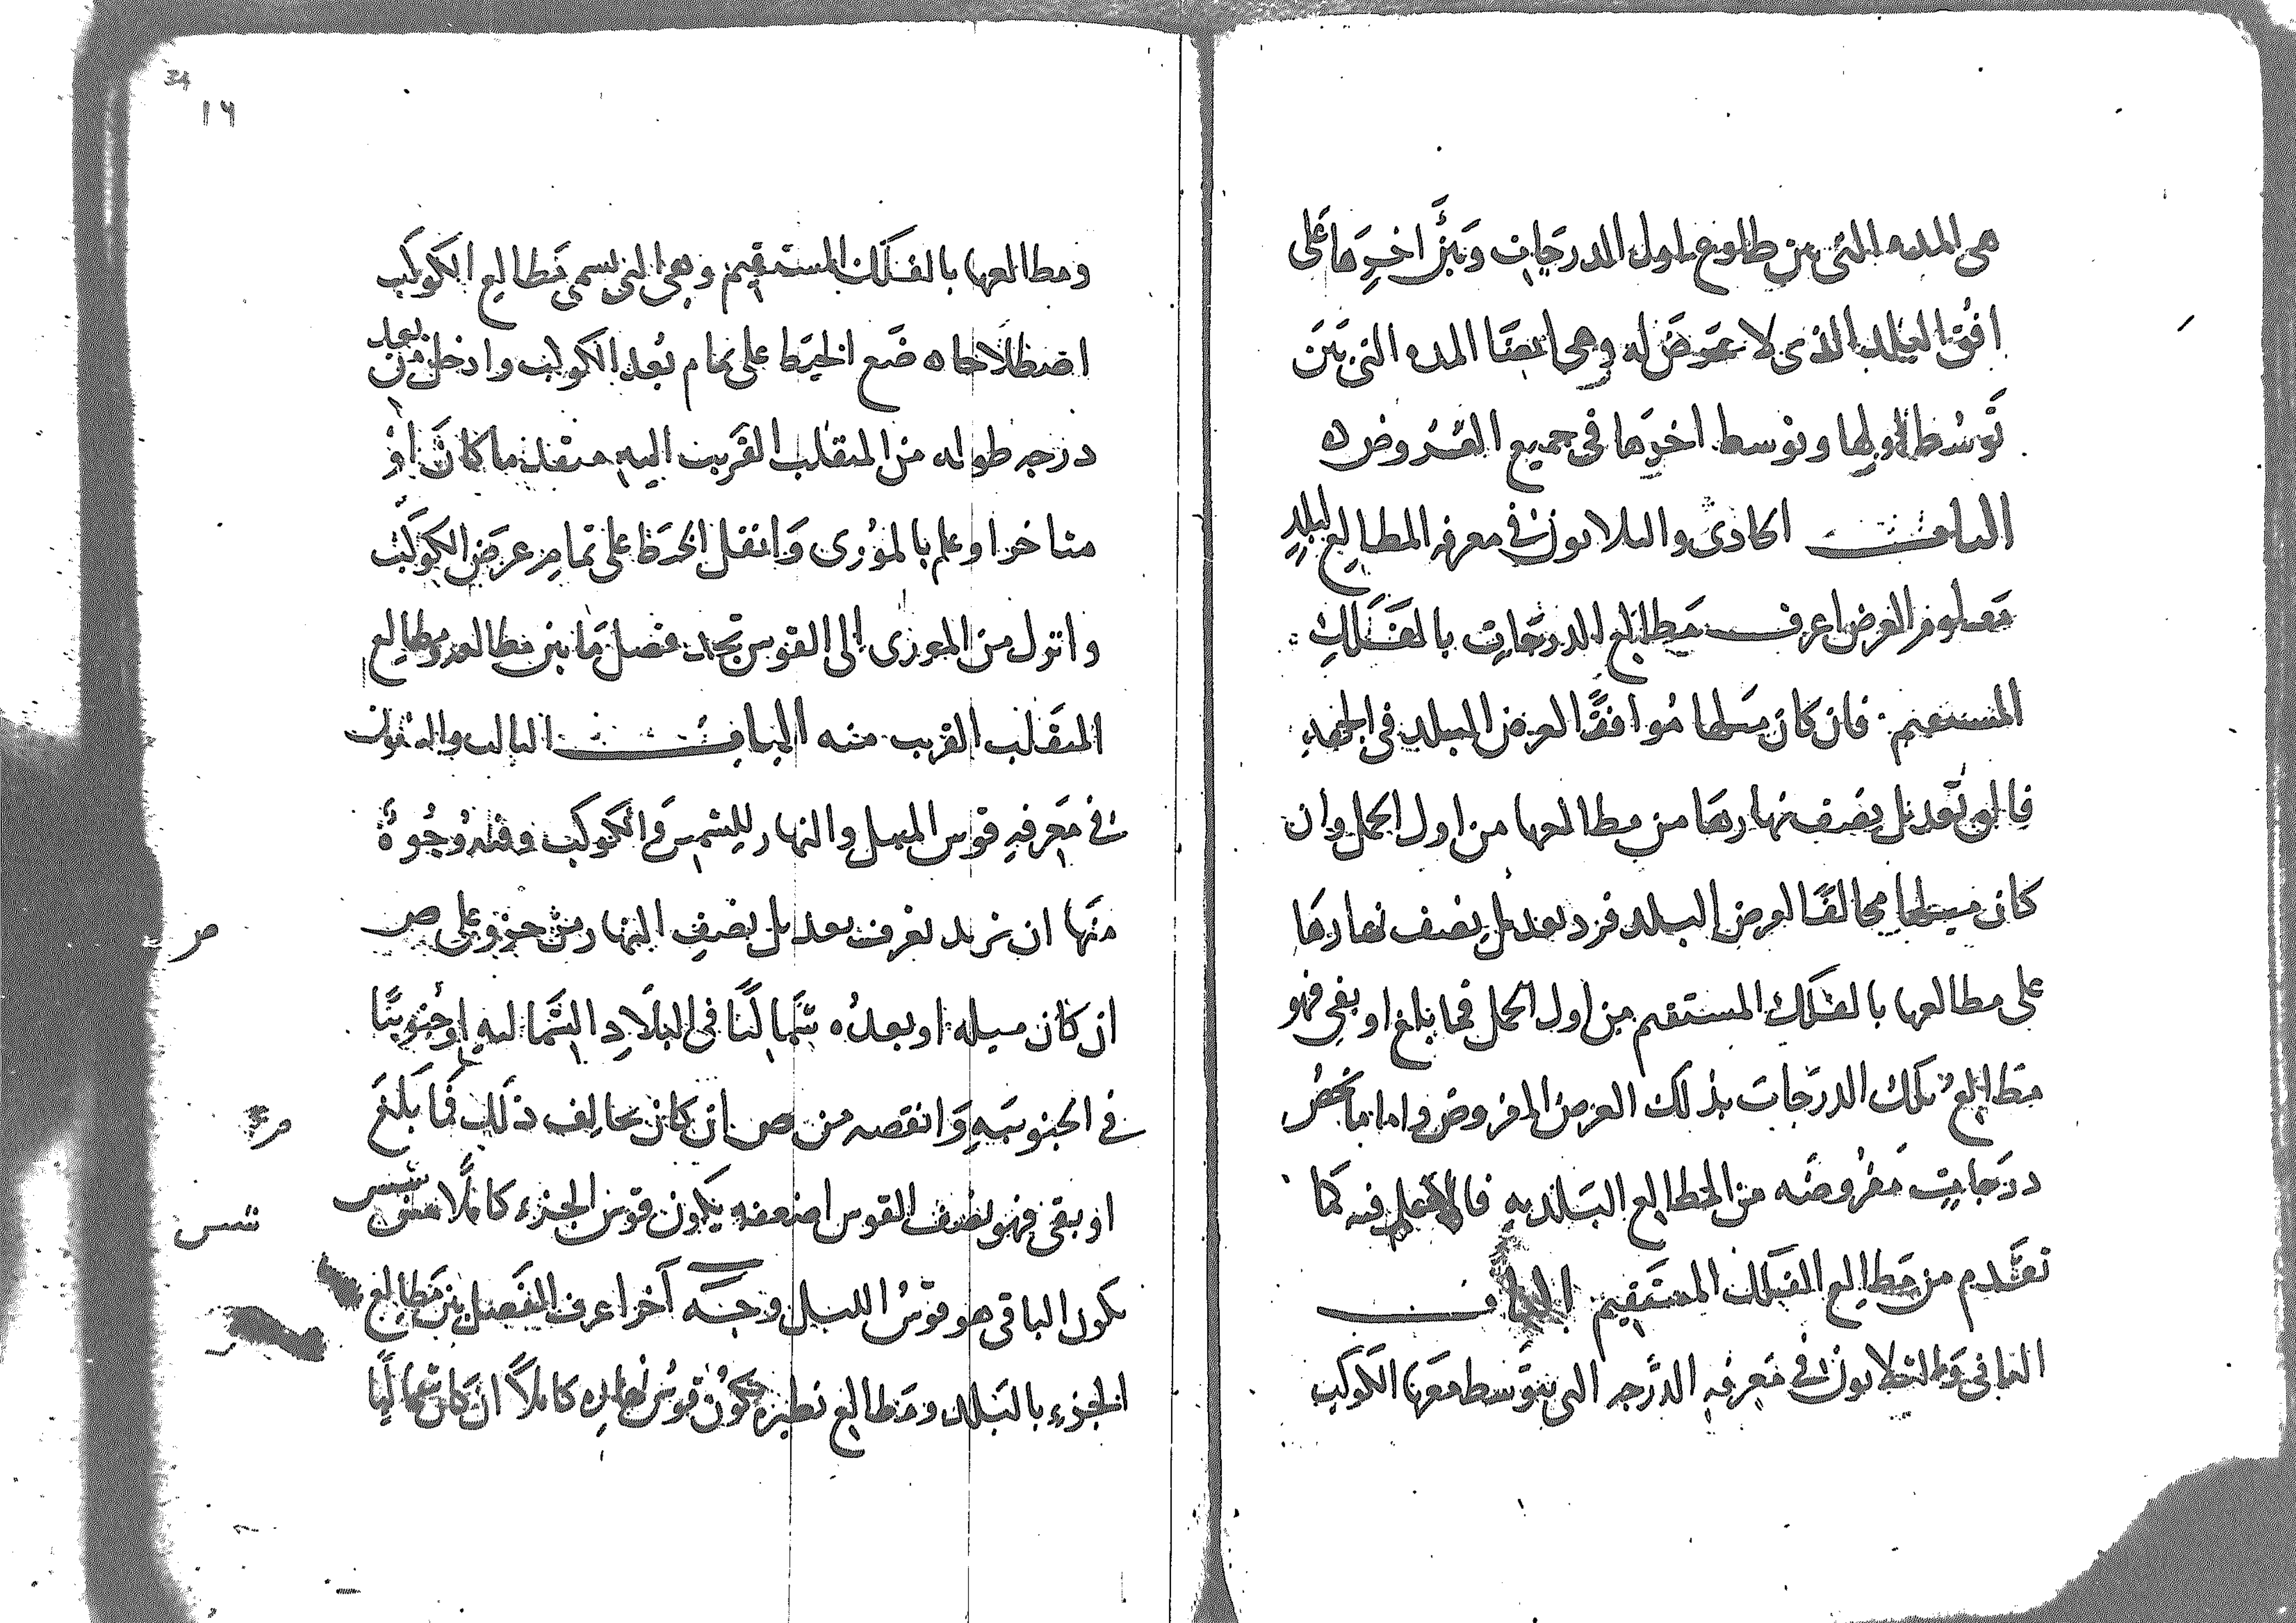 هى المده التى بين طلوع اول الدرجات وبين اخرها على
افق البلد الذى لا عرض له وهى ايضا المده التى بين
توسط اولها وتوسط اخرها فى جميع العروض ه
الباب الحادى والثلاثون فى معرفه المطالع لبلد
معلوم العرض اعرف مطالع الدرجات بالفلك
المستقيم فان كان ميلها موافقا لعرض البلد فى الجهه
فالق تعديل نصف نهارها من مطالعها من اول الحمل وان
كان ميلها مخالفا لعرض البلد فزد تعديل نصف نهارها
على مطالعها بالفلك المستقيم من اول الحمل فما بلغ او بقى فهو
مطالع تلك الدرجات بذلك العرض المفروض واما ما يخص
درجات مفروضه من المطالع البلديه فالعمل فيه كما
تقدم من مطالع الفلك المستقيم الباب
الثانى والثلاثون فى معرفه الدرجه التى يتوسط معها الكوكب
34
١٦
ومطالعها بالفلك المستقيم وهى التى تسمى مطالع الكوكب
اصطلاحا ه ضع الخيط على تمام بعد الكوكب وادخل من بعد
درجه طوله من المنقلب القريب اليه متقدما كان او
متاخرا وعلم بالمورى وانقل الخيط على تمام عرض الكوكب
وانزل من المورى الى القوس تجد فضل ما بين مطالعه ومطالع
المنقلب القريب منه الباب الثالث والثلثون
فى معرفه قوس الليل والنهار للشمس والكوكب وفيه وجوه
منها ان تزيد نعرف تعديل نصف النهار من جزو على ص
ان كان ميله او بعده شماليا فى البلاد الشماليه او جنوبيا
فى الجنوبيه وانقصه من ص ان كان بخالف ذلك فما بلغ
او بقى فهو نصف القوس اضعفه يكون قوس الجزء كاملا شس
يكون الباقى هو قوس الليل وجه آخر اعرف الفصل بين مطالع
الجزء بالبلد ومطالع نظيره يكون قوس نهاره كاملا ان كان شماليا
ص
شس